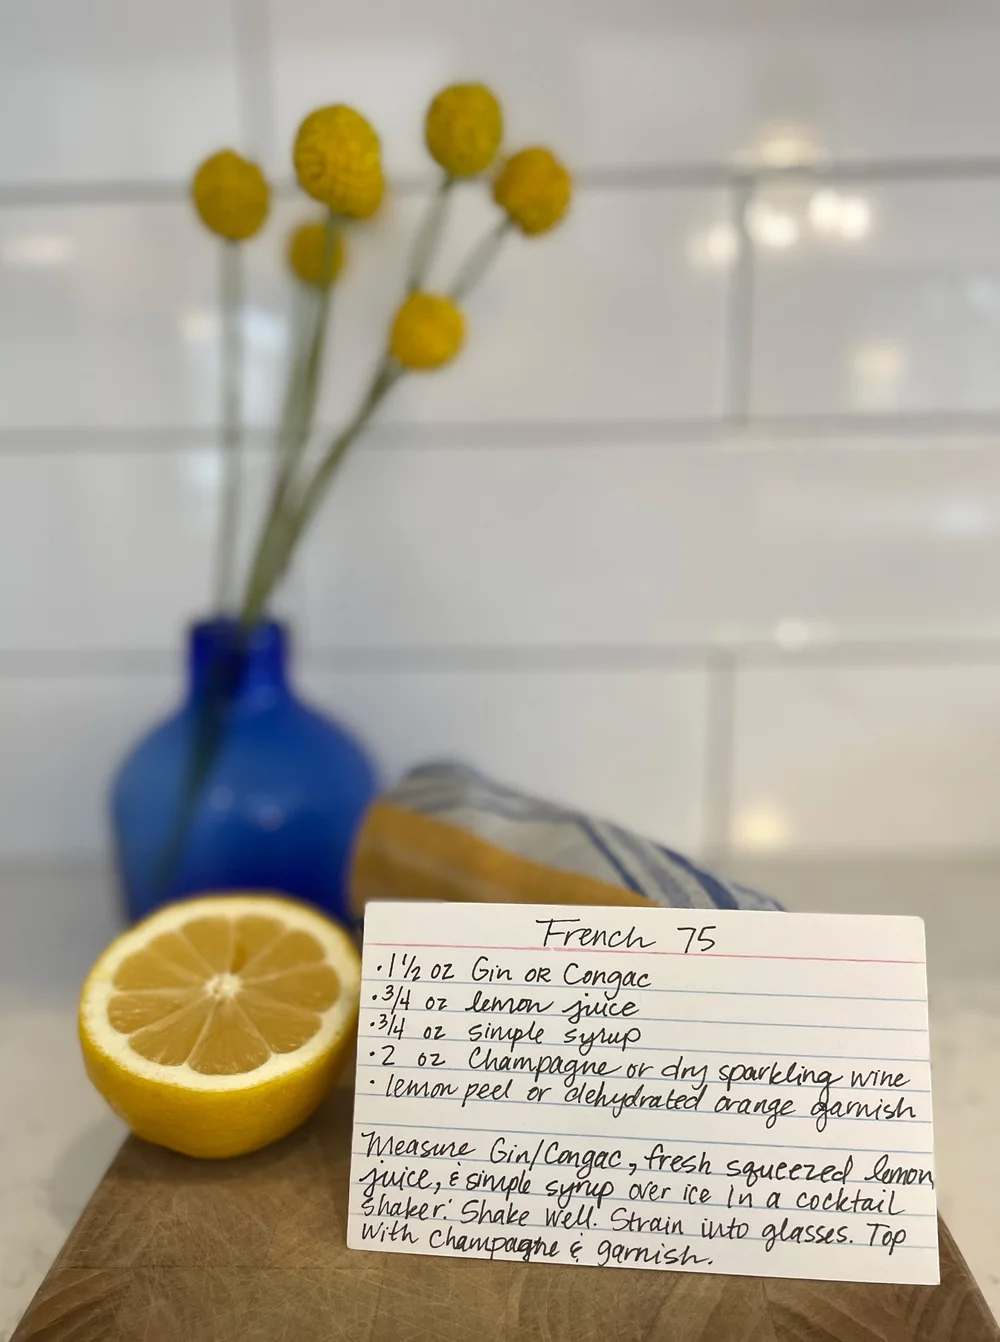 French 75
· 1 1/2 oz Gin or Congac
· 3/4 oz lemon juice
· 3/4 oz simple syrup
· 2 oz Champagne or dry sparkling wine
· lemon peel or dehydrated orange garnish
Measure Gin/Congac, fresh squeezed lemon
juice, & simple syrup over ice in a cocktail
shaker. Shake well. Strain into glasses. Top
with champagne & garnish.